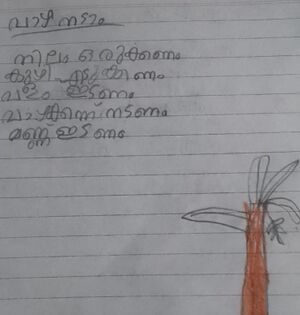 വാഴ നടാം
നിലം ഒരുക്കണം
കുഴി എടുക്കണം
വളം ഇടണം
വാഴക്കന്ന് നടണം
മണ്ണ് ഇടണം